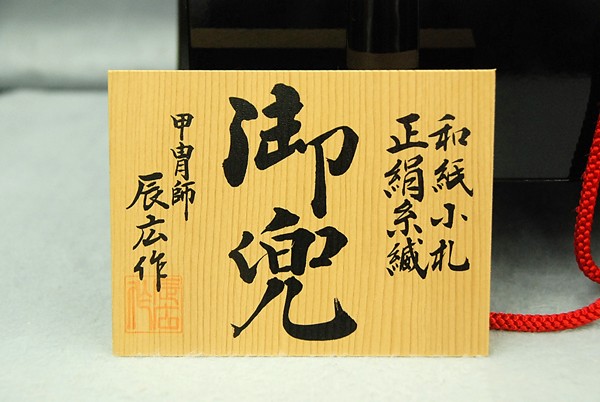 和紙小札
正絹糸縅
御兜
甲冑師
辰広作